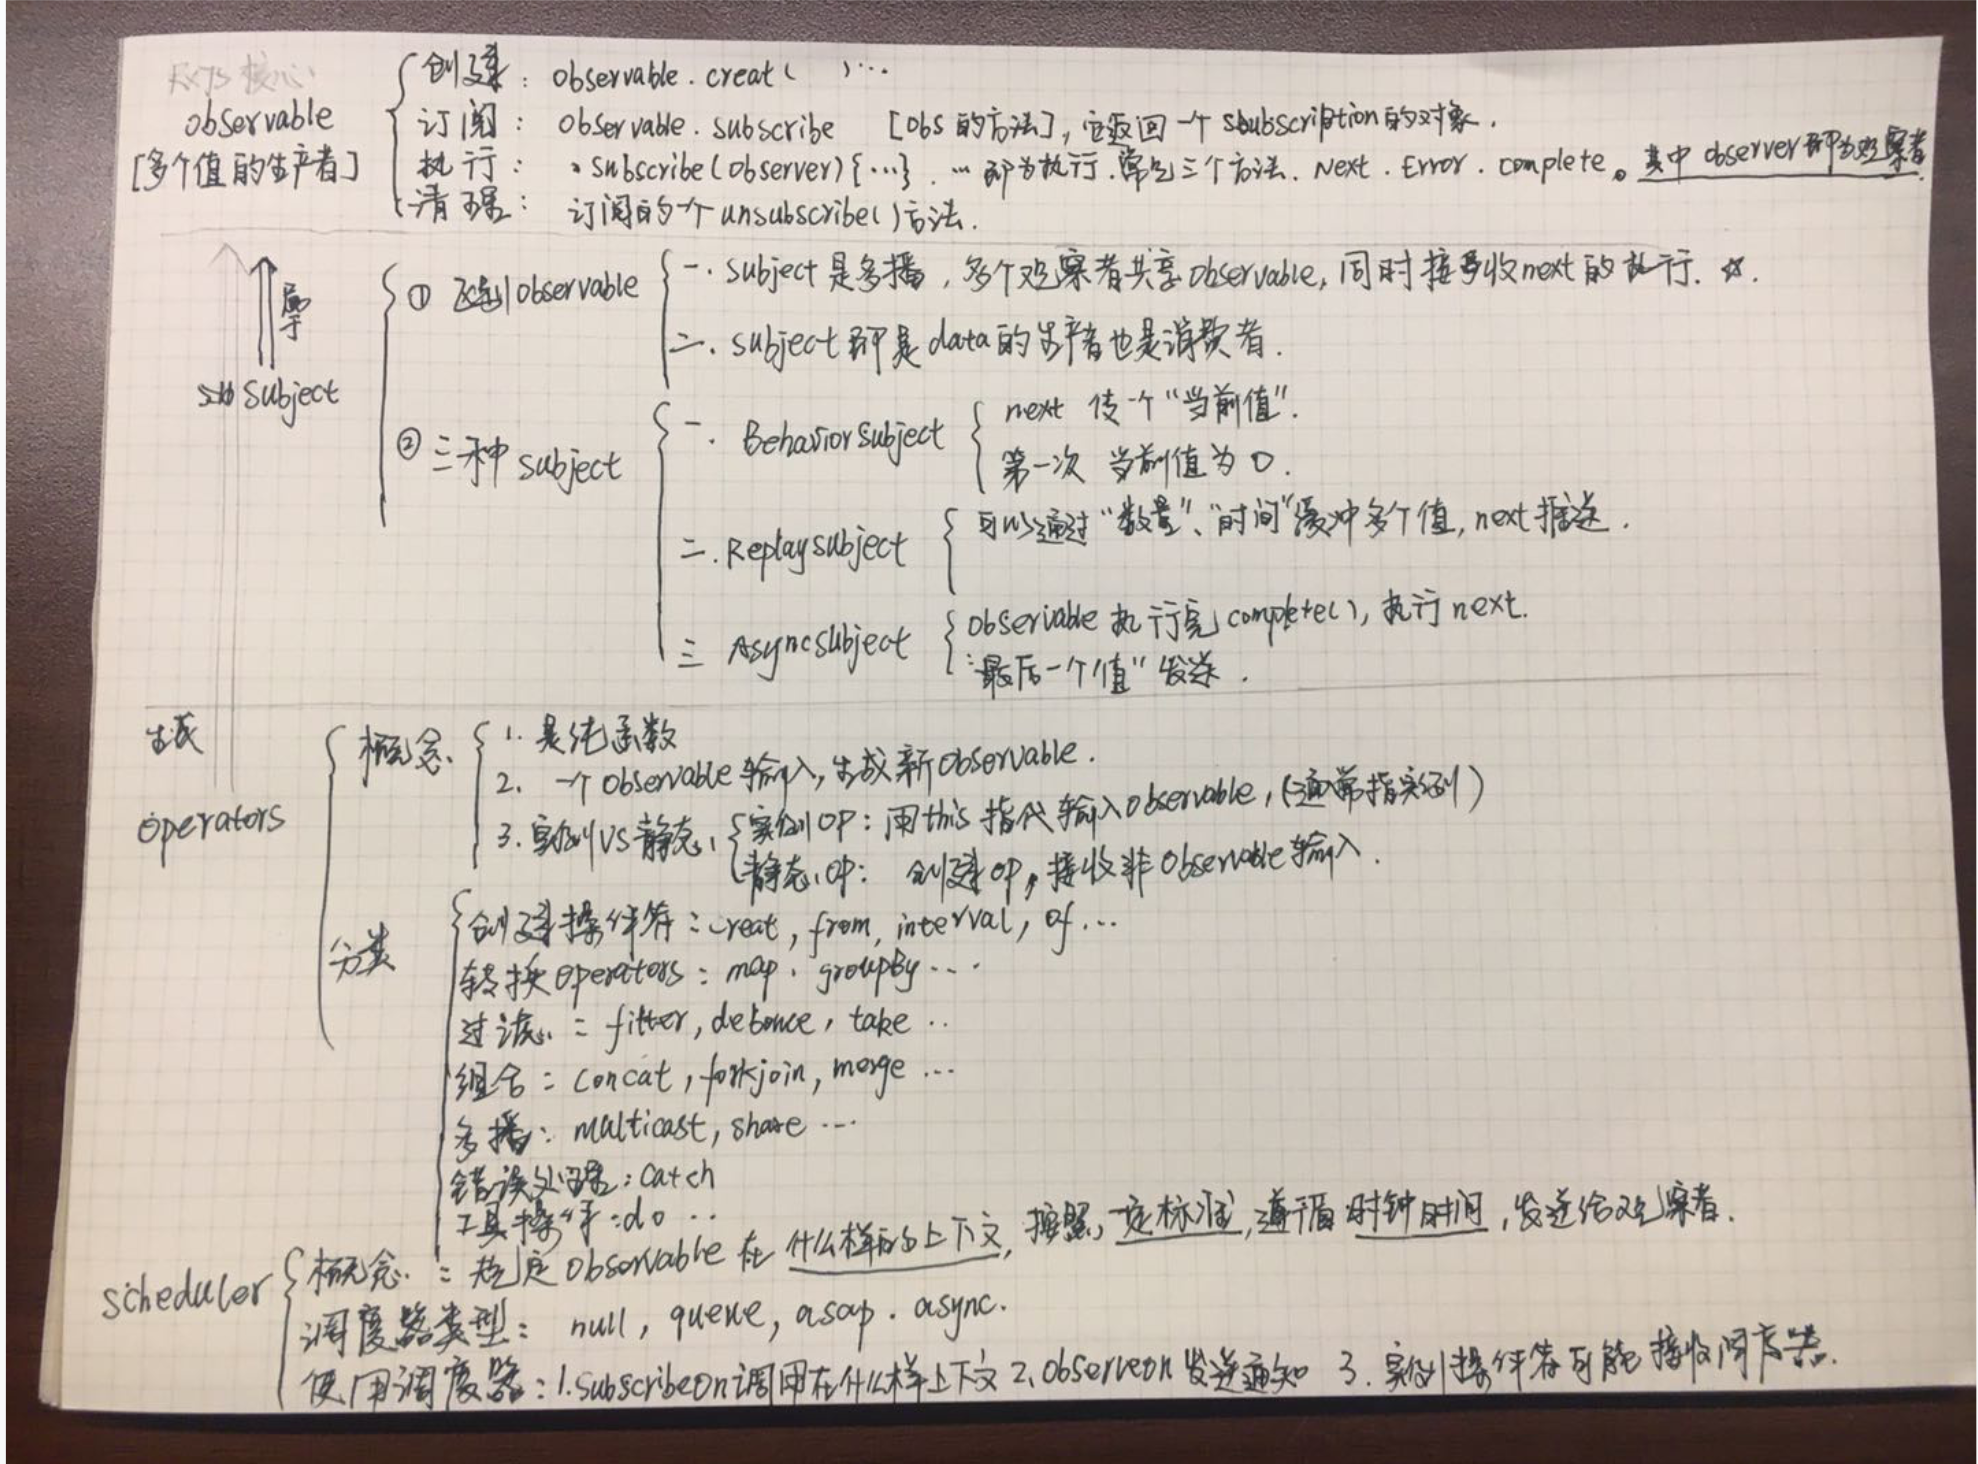 RxJS 核心
observable
[多个值的生产者]
创建: observable.creat( )...
订阅: observable.subscribe [obs的方法], 它返回一个subscribtion的对象.
执行: .subscribe(observer){...}. ...即为执行.常包三个方法. Next. Error. complete。其中observer即为观察者
清理: 订阅的一个unsubscribe()方法.
属于
subject
① 区别observable
一. subject是多播, 多个观察者共享observable, 同时接收next的执行. ☆.
二. subject即是data的生产者也是消费者.
② 三种subject
一. Behaviorsubject
next 传一个"当前值".
第一次 当前值为0.
二. Replaysubject
可以通过"数量"、"时间"缓冲多个值, next推送.
三 Asyncsubject
observiable 执行完complete(), 执行next.
"最后一个值"发送.
生成
operators
概念
1. 是纯函数
2. 一个observable输入, 生成新observable.
3. 实例VS静态
实例OP: 用this指代输入observable, (通常指实例)
静态OP: 创建OP, 接收非observable输入.
分类
创建操作符: creat, from, interval, of...
转换operators: map. groupBy...
过滤: fitter, debonce, take..
组合: concat, forkjoin, merge...
多播: multicast, share...
错误处理: catch
工具操作: do..
scheduler
概念: 规定observable在什么样的上下文, 按照一定标准, 遵循时钟时间, 发送给观察者.
调度器类型: null, queue, asap. async.
使用调度器: 1. subscribeon调用在什么样上下文 2. observeon发送通知 3. 实例操作符可能接收调度器.